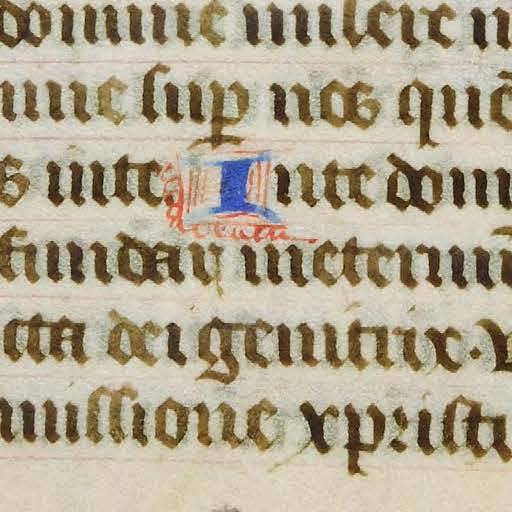 domine misere n
nune sup nos quē
s in te In te domi
fundar in eternū
cta dei genitrix. V
missione xpristi